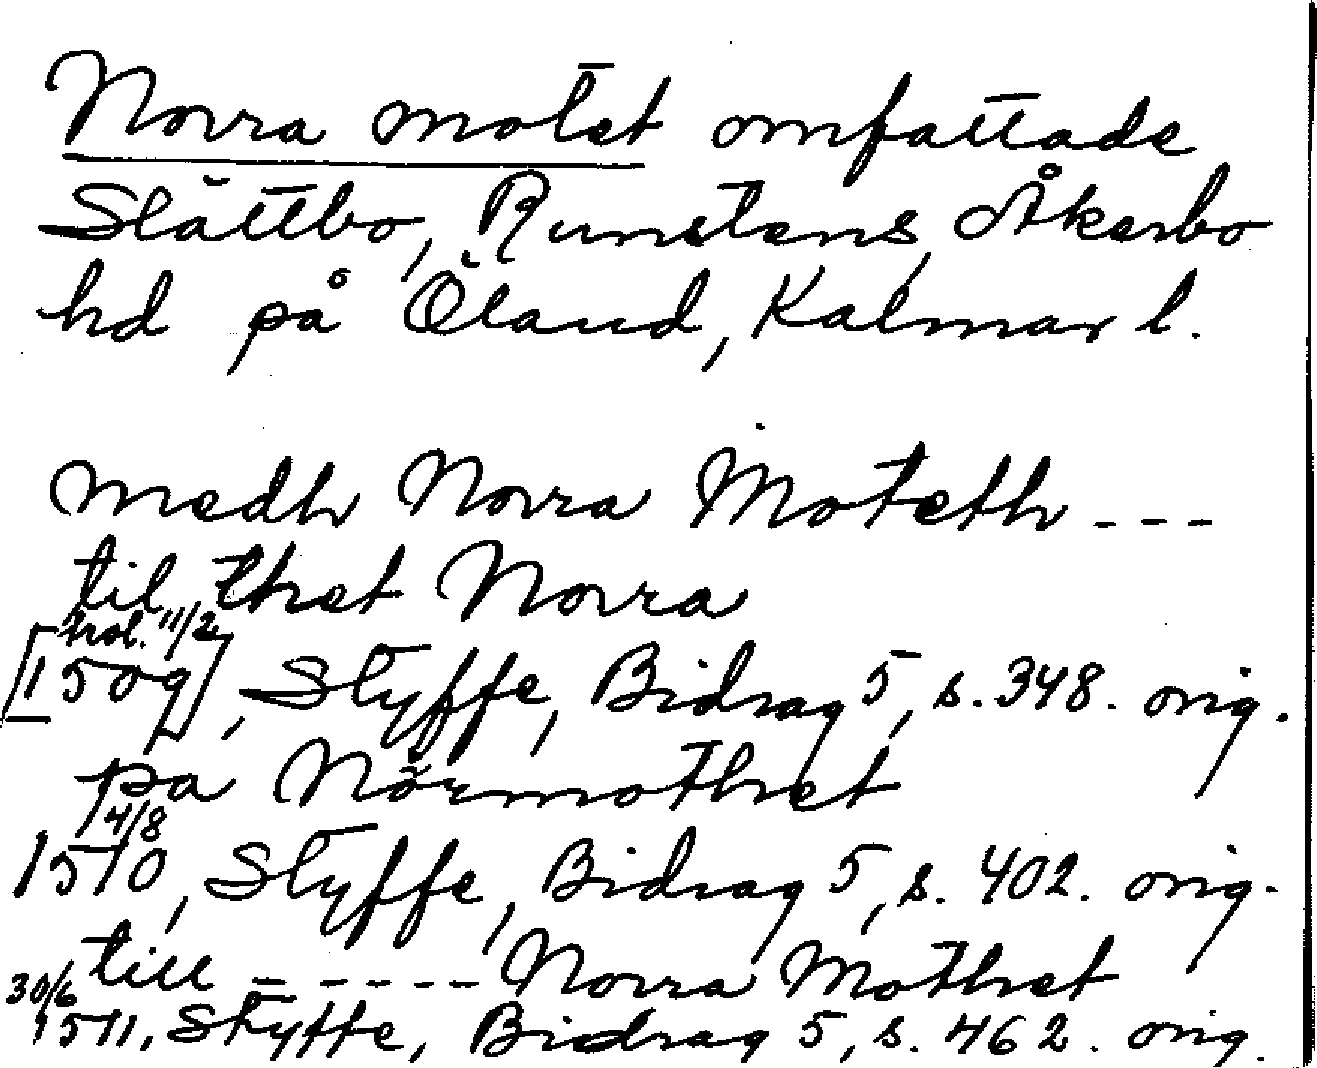 Norra motet omfattade
Slättbo, Runstens, Åkerbo
hd på Öland, Kalmar l.
medh Norra Moteth ---
til thet Norra
[trol. 11/2
1509], Styffe, Bidrag 5, s. 348. orig.
pa Nörmothet
14/8
1510, Styffe, Bidrag 5, s. 402. orig.
till ----- Norra Mothet
30/6
1511, Styffe, Bidrag 5, s. 462. orig.